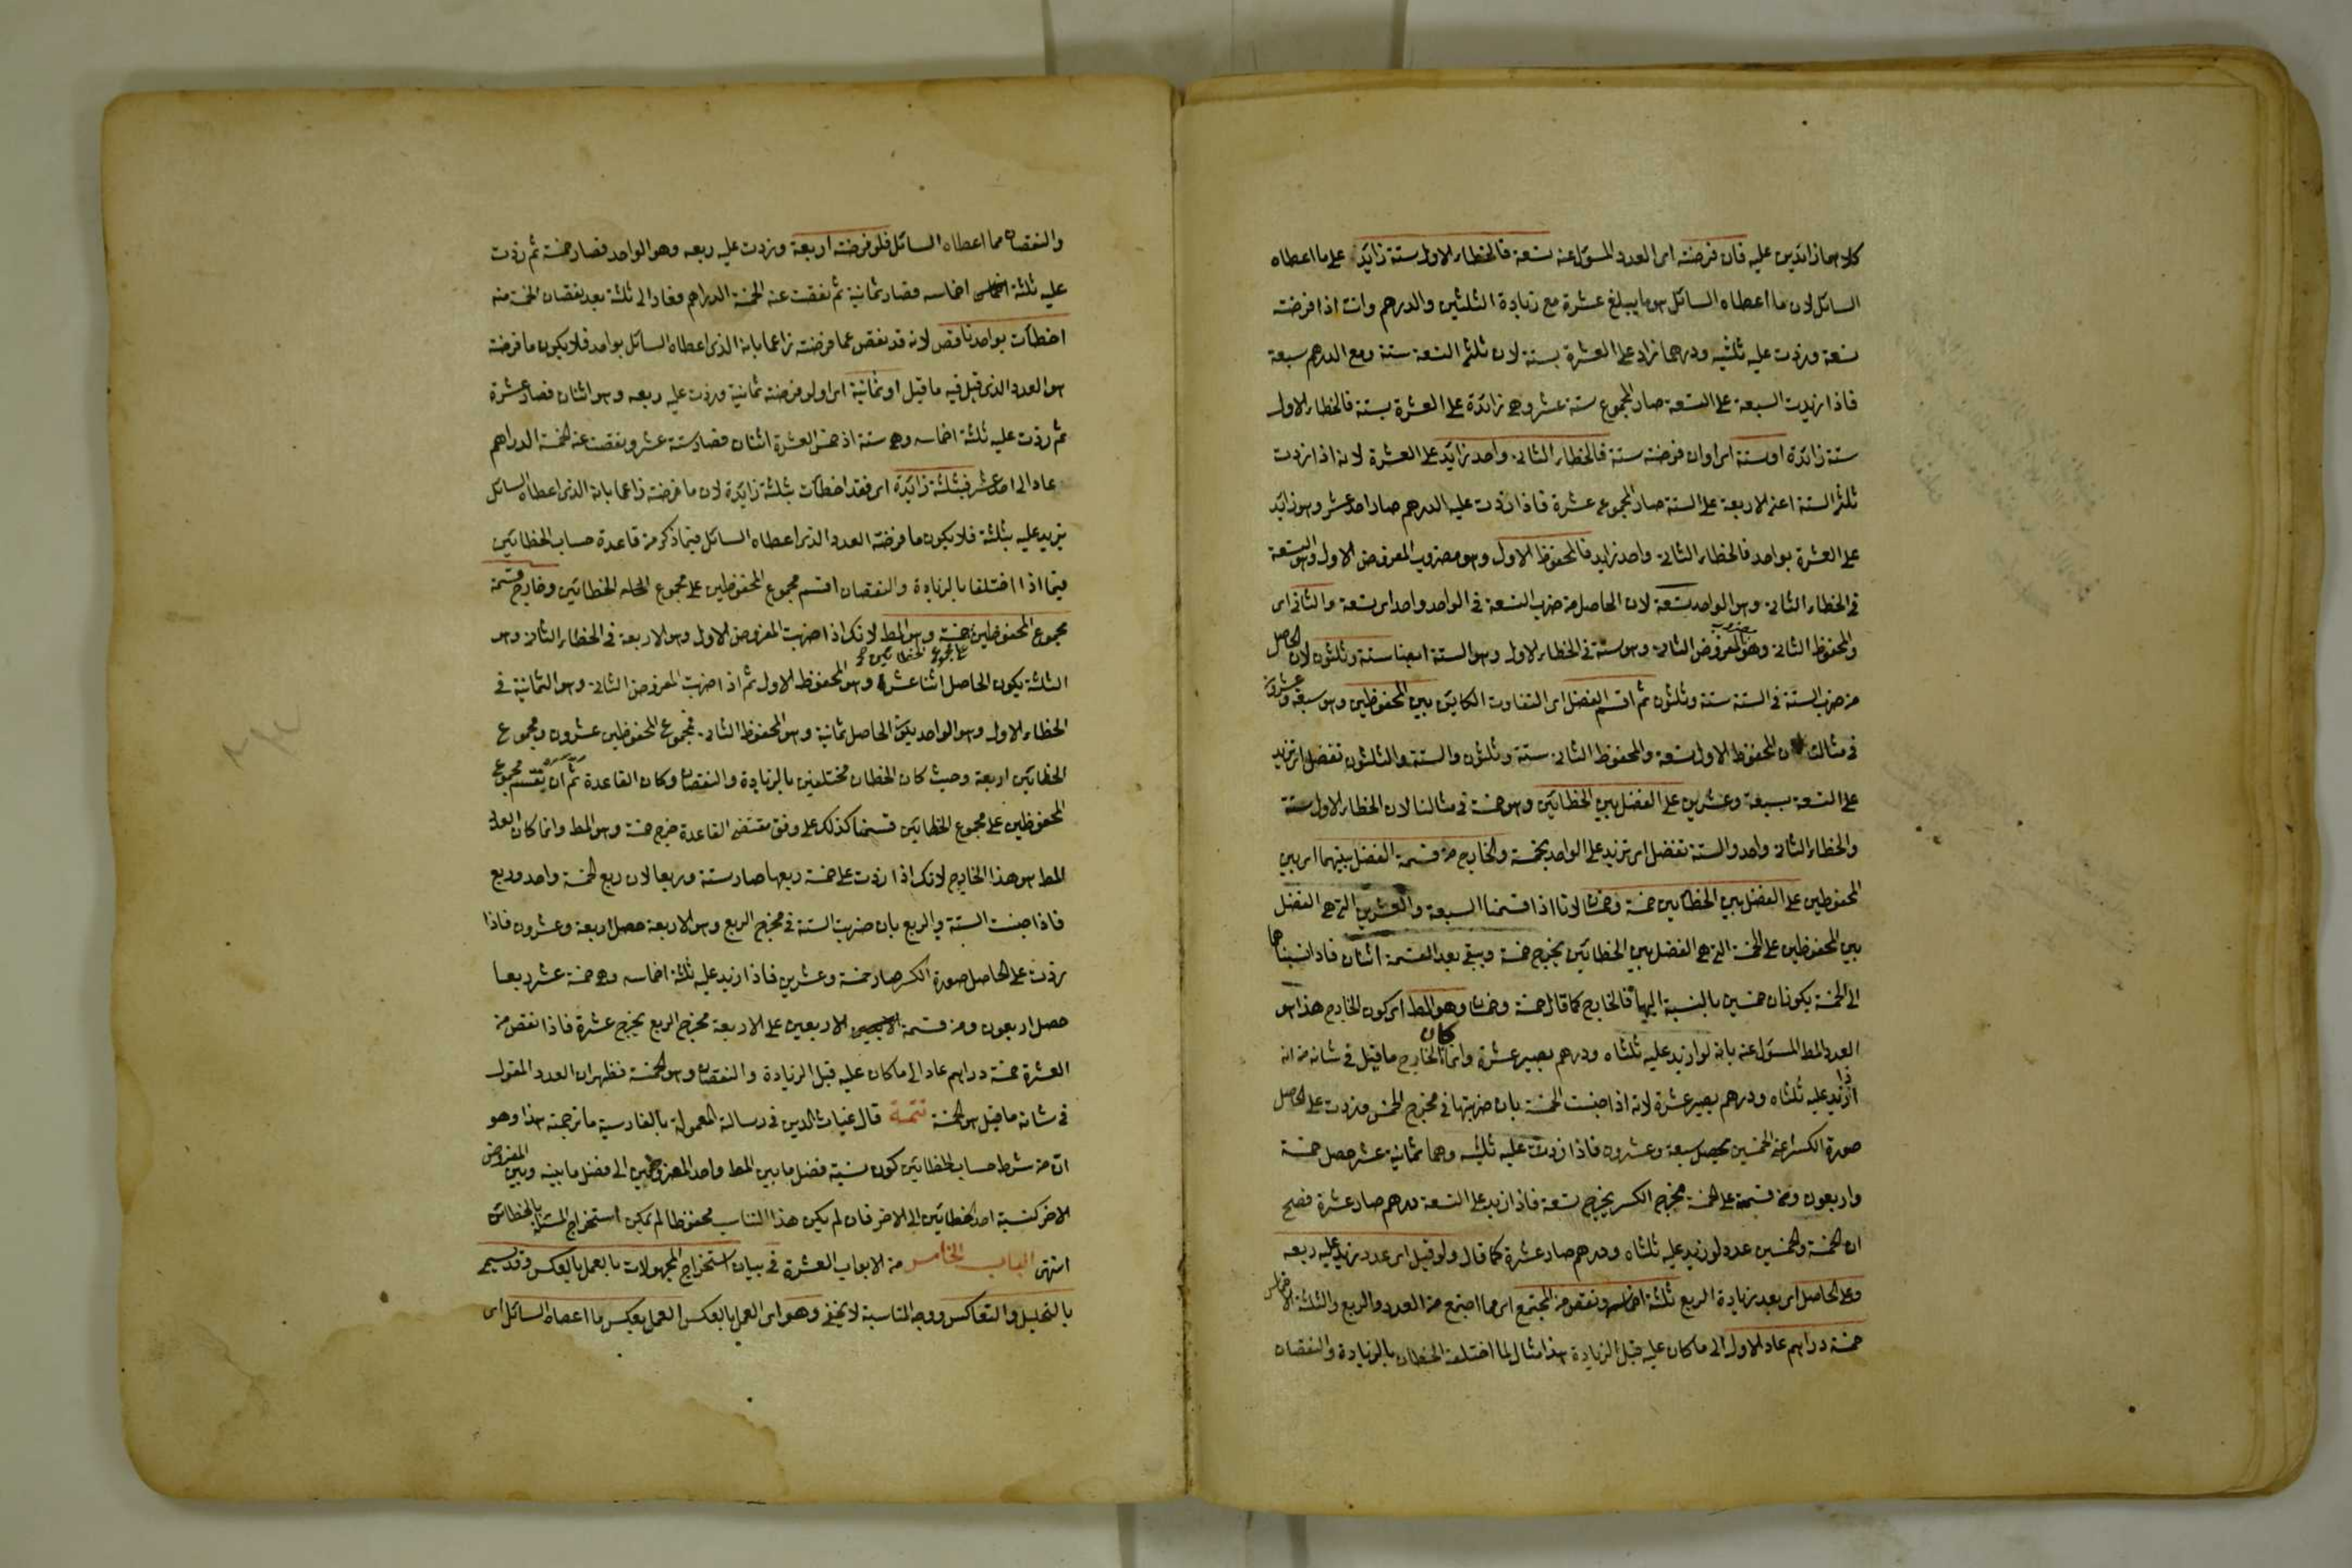 كلاهما زائدين عليه فان فرضته اى العدد المسؤل عنه تسعة فالخطاء الاول ستة زائدة على ما اعطاه
السائل لان ما اعطاه السائل هو ما يبلغ عشرة مع زيادة الثلثين والدرهم وانت اذا فرضته
تسعة وزدت عليه ثلثيه ودرهما زاد على العشرة بستة لان ثلثى التسعة ستة ومع الدرهم سبعة
فاذا زيدت السبعة على التسعة صار المجموع ستة عشر وهى زائدة على العشرة بستة فالخطاء الاول
ستة زائدة او ستة اى اوان فرضته ستة فالخطاء الثانى واحد زائد على العشرة لانه اذا زدت
ثلثى الستة اعنى الاربعة على الستة صار المجموع عشرة فاذا زدت عليه الدرهم صار احد عشر وهو زائد
على العشرة بواحد فالخطاء الثانى واحد زايد فالمحفوظ الاول وهو مضروب المفروض الاول وهو التسعة
فى الخطاء الثانى وهو الواحد تسعة لان الحاصل من ضرب التسعة فى الواحد واحد اى تسعة والثانى اى
والمحفوظ الثانى وهو مضروب المفروض الثانى وهو ستة فى الخطاء الاول وهو الستة ايضا ستة وثلثون لان الحاصل
من ضرب الستة فى الستة ستة وثلثون ثم اقسم الفضل اى التفاوت الكاين بين المحفوظين وهو سبعة وعشرون
فى مثالنا لان المحفوظ الاول تسعة والمحفوظ الثانى ستة وثلثون والستة والثلثون تفضل اى تزيد
على التسعة بسبعة وعشرين على الفضل بين الخطائين وهو خمسة فى مثالنا لان الخطاء الاول ستة
والخطاء الثانى واحد والستة تفضل اى تزيد على الواحد بخمسة والخارج من قسمة الفضل بينهما اى بين
المحفوظين على الفضل بين الخطائين خمسة وخمسان لانا اذا قسمنا السبعة والعشرين التى هى الفضل
بين المحفوظين على الخمسة التى هى الفضل بين الخطائين يخرج خمسة ويبقى بعد القسمة اثنان فاذا نسبناهما
الى الخمسة يكونان خمسين بالنسبة اليها فالخارج كما قال خمسة وخمسان وهو المط اى كون الخارج هذا هو
العدد المط المسؤل عنه بانه لو ازيد عليه ثلثاه ودرهم يصير عشرة وانما كان الخارج ما قيل فى شانه من انه
اذا زيد عليه ثلثاه ودرهم يصير عشرة لانه اذا جنست الخمسة بان ضربتها فى مخرج الخمس وزدت على الحاصل
صورة الكسر اعنى الخمسين يحصل سبعة وعشرون فاذا زدت عليه ثلثيه وهما ثمانية عشر حصل خمسة
واربعون ومن قسمته على الخمسة مخرج الكسر يخرج تسعة فاذا زيد على التسعة درهم صار عشرة فصح
ان الخمسة والخمسين عدد لو زيد عليه ثلثاه ودرهم صار عشرة كما قال ولو قيل اى عدد زيد عليه ربعه
وعلى الحاصل اى بعد زيادة الربع ثلثة اخماسه ونقص من المجتمع اى مما اجتمع من العدد والربع والثلثة الاخماس
خمسة دراهم عاد الاول الى ما كان عليه قبل الزيادة هذا مثال لما اختلف الخطاان بالزيادة والنقصان
والنقصان مما اعطاه السائل فلو فرضته اربعة وزدت عليه ربعه وهو الواحد فصار خمسة ثم زدت
عليه ثلثة اخماسه فصار ثمانية ثم نقصت عنه الخمسة الدراهم فعاد الى ثلثة بعد نقصان الخمسة منه
اخطأت بواحد ناقص لانه قد نقص عما فرضته زاعما بانه الذى اعطاه السائل بواحد فلا يكون ما فرضته
هو العدد الذى قيل فيه ما قيل او ثمانية اى ولو فرضته ثمانية وزدت عليه ربعه وهو اثنان فصار عشرة
ثم زدت عليه ثلثة اخماسه وهى ستة اذ خمس العشرة اثنان فصار ستة عشر ونقصت عنه الخمسة الدراهم
عاد الى احد عشر فبثلثة زائدة اى فقد اخطأت بثلثة زائدة لان ما فرضته زاعما بانه الذى اعطاه السائل
يزيد عليه بثلثة فلا يكون ما فرضته العدد الذى اعطاه السائل فبما ذكر من قاعدة حساب الخطائين
فيما اذا اختلفا بالزيادة والنقصان اقسم مجموع المحفوظين على مجموع الخطائين وخارج قسمة
مجموع المحفوظين على مجموع الخطائين خمسة وهو المط لانك اذا ضربت المفروض الاول وهو الاربعة فى الخطاء الثانى وهو
الثلثة يكون الحاصل اثنا عشر وهو المحفوظ الاول ثم اذا ضربت المفروض الثانى وهو الثمانية فى
الخطاء الاول وهو الواحد يكون الحاصل ثمانية وهو المحفوظ الثانى فمجموع المحفوظين عشرون ومجموع
الخطائين اربعة وحيث كان الخطاان مختلفين بالزيادة والنقصان وكان القاعدة ثم ان يقسم مجموع
المحفوظين على مجموع الخطائين قسمنا كذلك على وفق مقتضى القاعدة خرج خمسة وهو المط وانما كان العدد
المط هو هذا الخارج لانك اذا زدت على خمسة ربعها صار ستة وربعا لان ربع الخمسة واحد وربع
فاذا جنست الستة والربع بان ضربت الستة فى مخرج الربع وهو الاربعة حصل اربعة وعشرون فاذا
زدت على الحاصل صورة الكسر صار خمسة وعشرين فاذا زيد عليه ثلثة اخماسه وهى خمسة عشر ربعا
حصل اربعون ومن قسمة الاربعين على الاربعة مخرج الربع يخرج عشرة فاذا نقص من
العشرة خمسة دراهم عاد الى ما كان عليه قبل الزيادة والنقصان وهو الخمسة فظهر ان العدد المقول
فى شانه ما قيل هو الخمسة تتمة قال غياث الدين فى رسالة المعمولة بالفارسية ما ترجمته هذا وهو
ان من شرط حساب الخطائين كون نسبة فضل ما بين المط واحد المفروضين الى فضل ما بينه وبين المفروض
الاخر كنسبة احد الخطائين الى الاخر فان لم يكن هذا التناسب محفوظا لم يمكن استخراج المسئلة بالخطائين
انتهى الباب الخامس من الابواب العشرة فى بيان استخراج المجهولات بالعمل بالعكس وقد يسمى
بالتحليل والتعاكس ووجه المناسبة لا يخفى وهو اى العمل بالعكس العمل بعكس ما اعطاه السائل اى